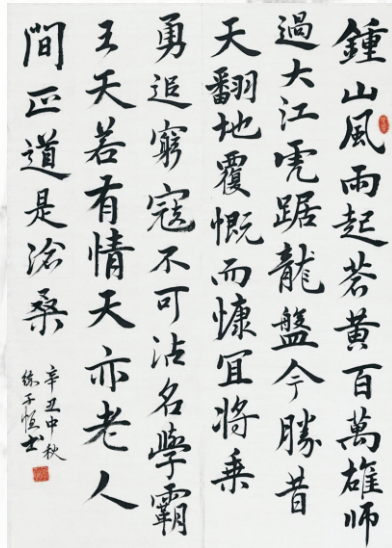 鍾山風雨起蒼黃百萬雄師
過大江虎踞龍盤今勝昔
天翻地覆慨而慷宜將乘
勇追窮寇不可沽名學霸
王天若有情天亦老人
間正道是滄桑
辛丑中秋
子恒书